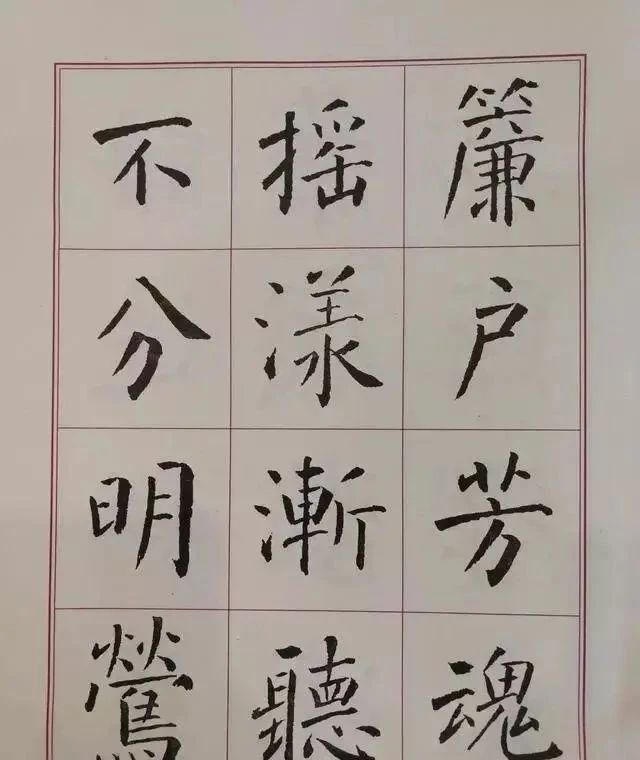 簾户芳魂
摇漾漸聽
不分明鶯